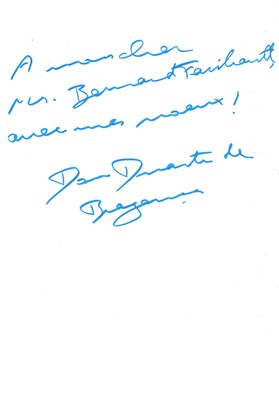 A mon cher
Mr. Bernard
avec mes voeux!
Dom Duarte de
Bragança